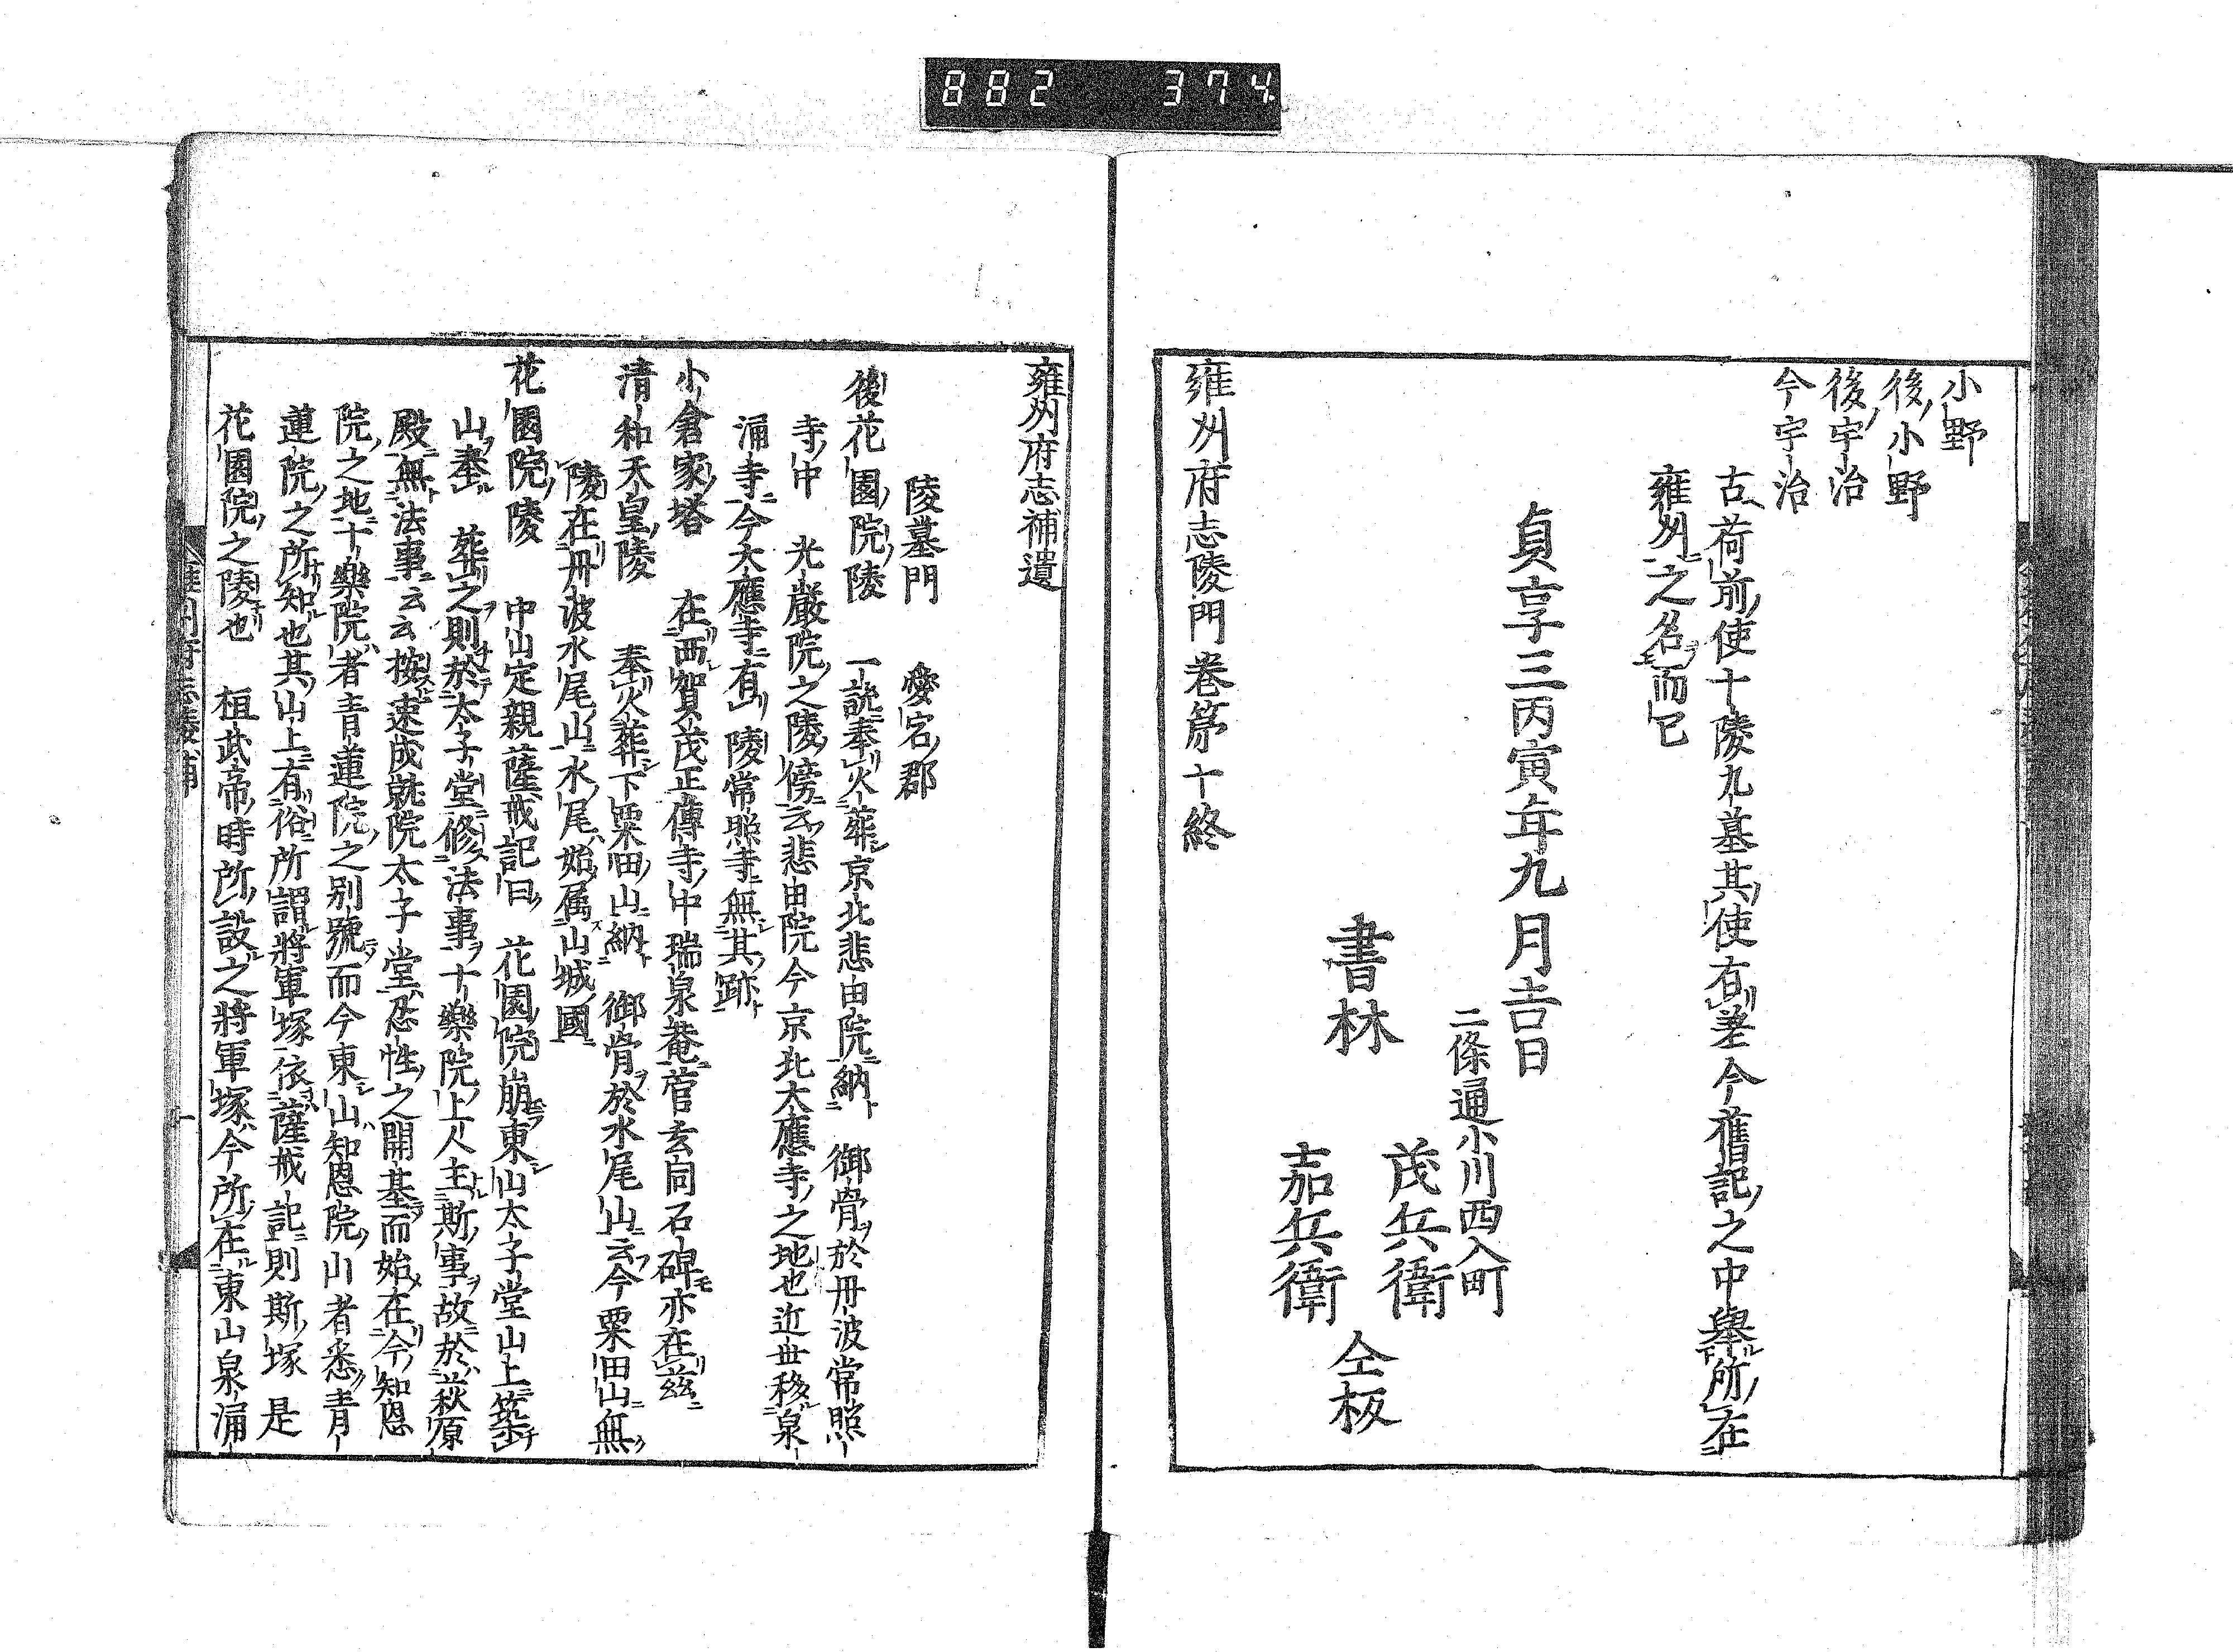 882 374
小野
後小野
後宇治
今宇治
古荷前使十陵九墓其使有差今舊記之中舉所在
雍州之名而已
貞享三丙寅年九月吉日
二條通小川西入町
書林
茂兵衛
嘉兵衛
仝板
雍州府志陵門卷第十終
雍州府志補遺
陵墓門 愛宕郡
後花園院陵 一說奉火葬京北悲由院納 御骨於丹波常照
寺中 光嚴院之陵傍云悲由院今京北大應寺之地也近世移泉
涌寺今大應寺有陵常照寺無其跡
小倉家塔 在西賀茂正傳寺中瑞泉菴菅玄同石碑亦在茲
清和天皇陵 奉火葬下粟田山納 御骨於水尾山云今粟田山無
陵在丹波水尾山水尾始属山城國
花園院陵 中山定親薩戒記曰 花園院崩東山太子堂山上築
山奉 葬之則於太子堂修法事十樂院上人主斯事故於萩原
殿無法事云云按速成就院太子堂忍性之開基而始在今知恩
院之地十樂院者青蓮院之別號而今東山知恩院山者悉青
蓮院之所知也其山上有俗所謂將軍塚依薩戒記則斯塚是
花園院之陵也 桓武帝時所設之將軍塚今所在東山泉涌
雍州府志陵補 一